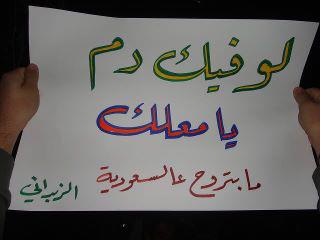 لو فيك دم
يا معلك
ما بتروح عالسعودية
الزبداني